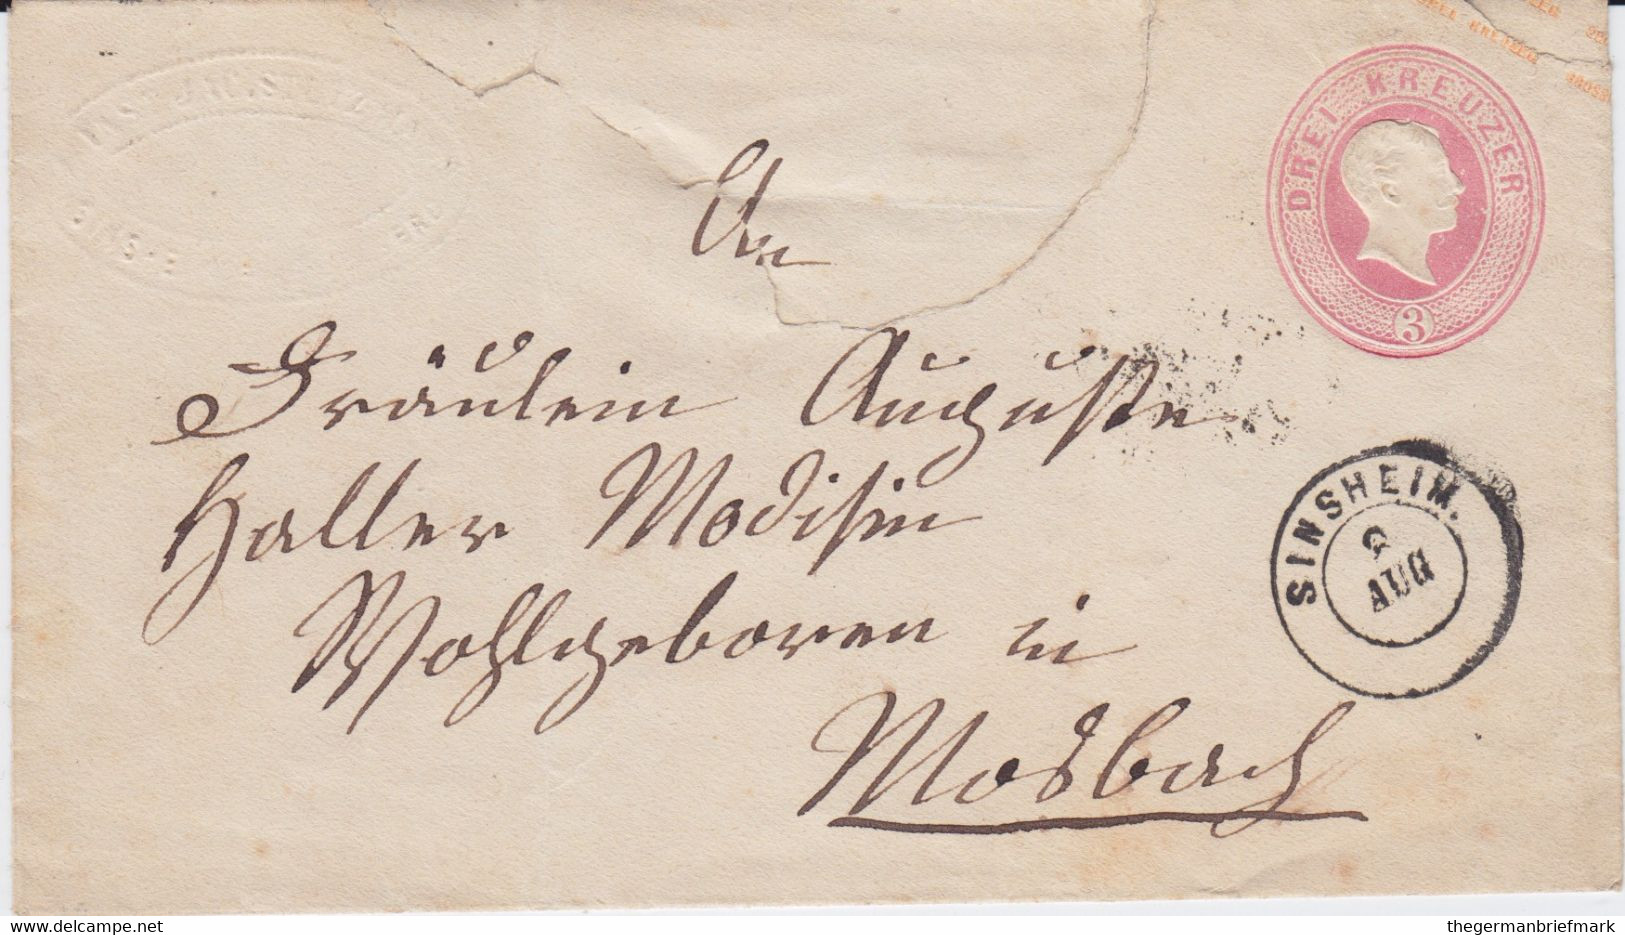 DREI KREUZER
3
An
Fräulein Auguste
Haller Modistin
Wohlgeboren in
Mosbach
SINSHEIM.
AUG
thegermanbriefmark